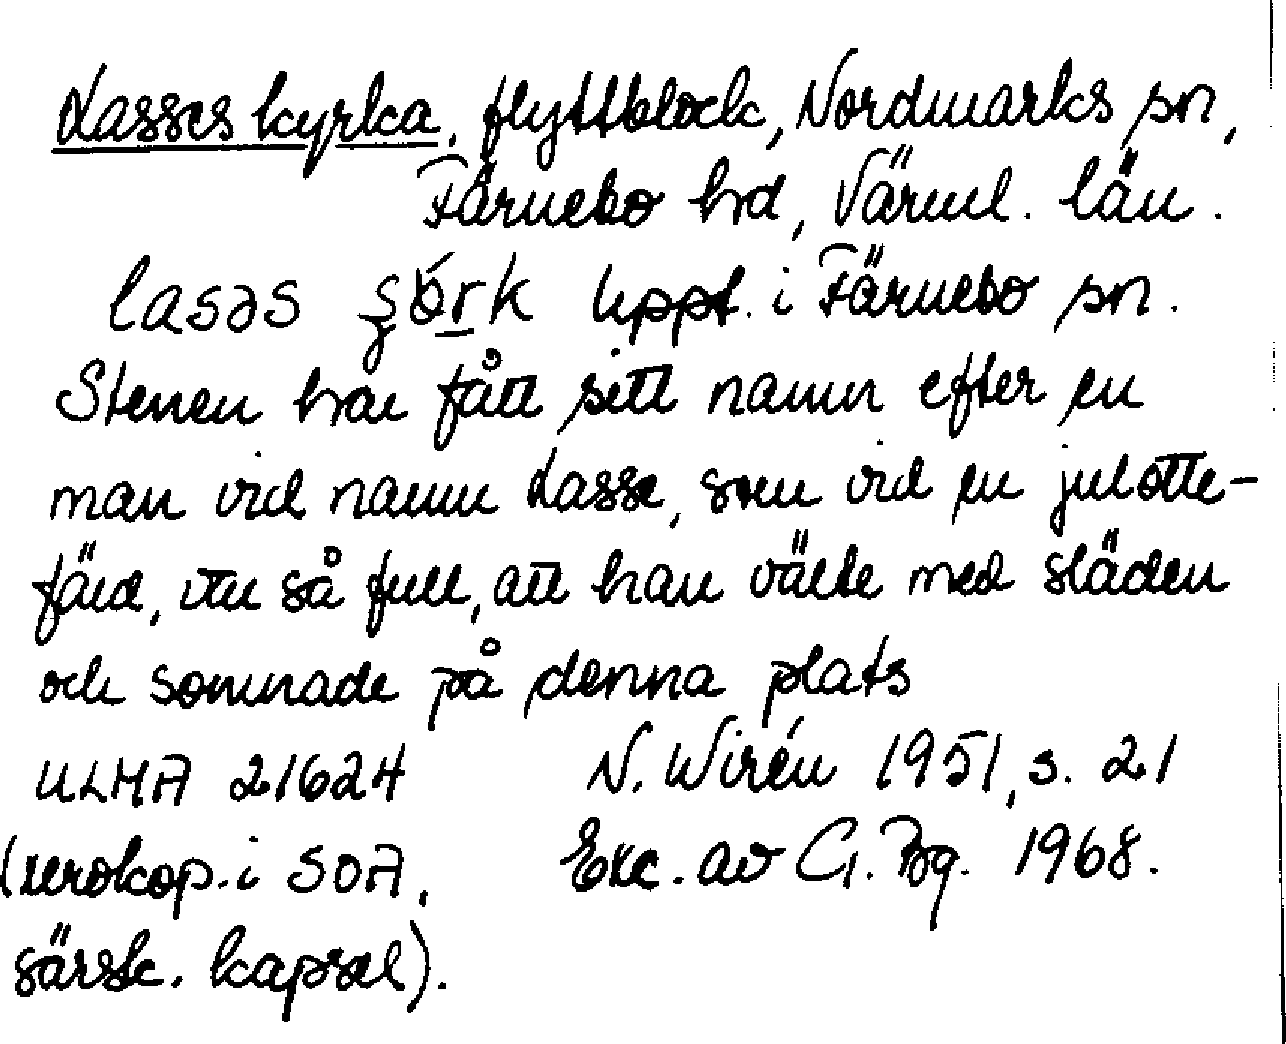 Lasses kyrka, flyttblock, Nordmarks sn,
Färnebo hd, Värml. län.
lasəs uppt. i Färnebo sn.
Stenen har fått sitt namn efter en
man vid namn Lasse, som vid en julotte-
färd, var så full, att han välte med släden
och somnade på denna plats
ULMA 21624 N. Wirén 1951, s. 21
(xerokop. i SOA, Exc. av G. Bg. 1968.
särsk. kapsel).